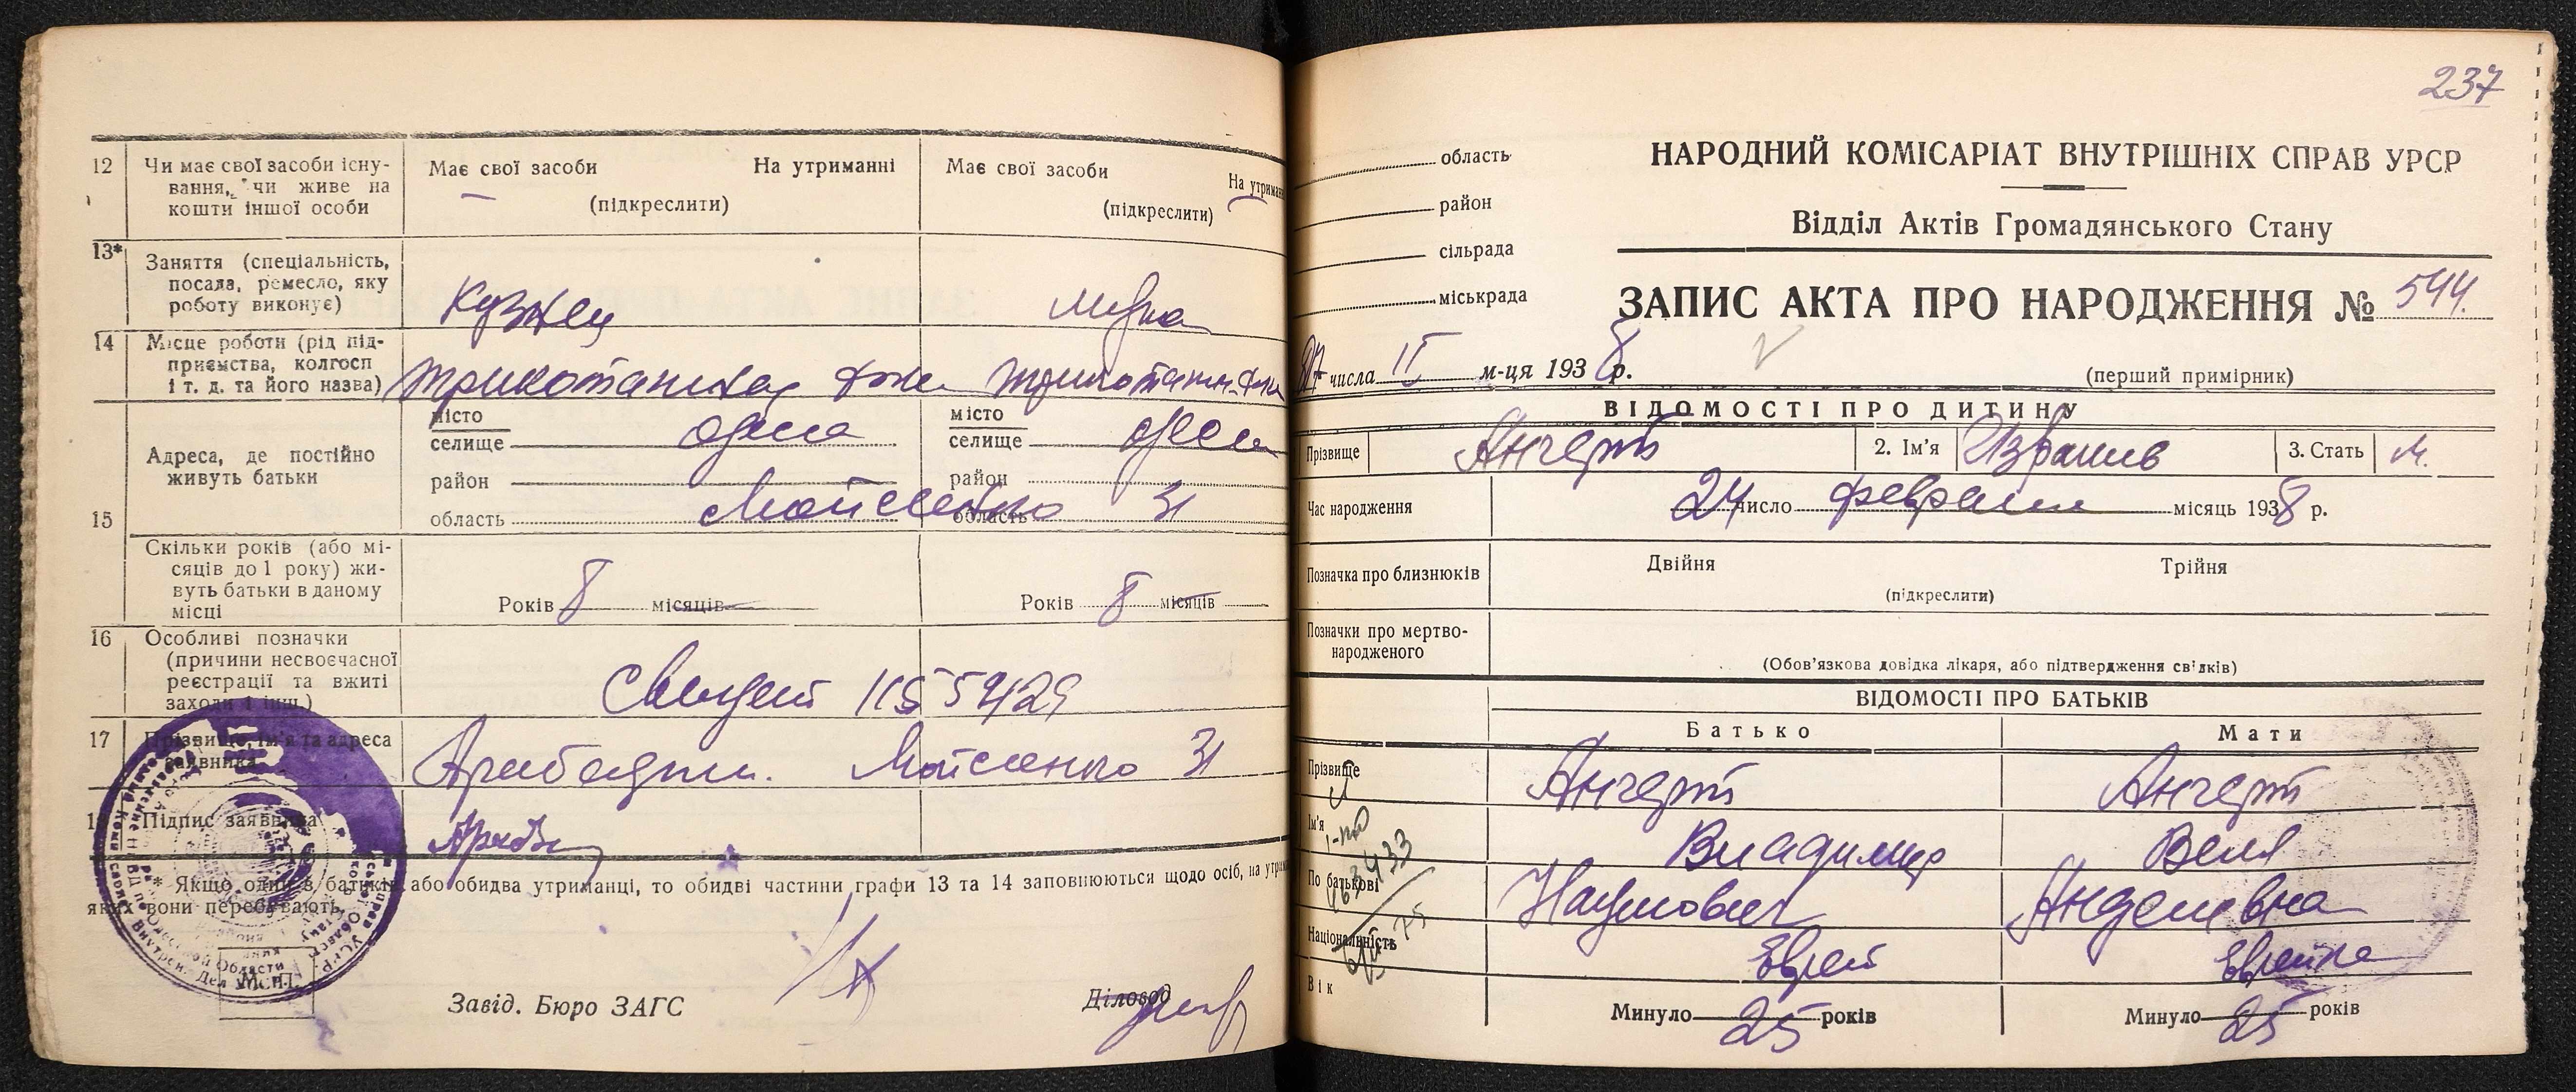 12 Чи має свої засоби існу-
вання, чи живе на
кошти іншої особи
Має свої засоби На утриманні
(підкреслити)
Має свої засоби На утриман
(підкреслити)
13* Заняття (спеціальність,
посада, ремесло, яку
роботу виконує)
Кузнец
14 Місце роботи (рід під-
приємства, колгосп
і т. д. та його назва)
15 Адреса, де постійно
живуть батьки
місто
селище Одесса
район
область Мойсеенко 31
місто
селище Одесса
район
область
Скільки років (або мі-
сяців до 1 року) жи-
вуть батьки в даному
місці
Років 8 місяців
Років 8 місяців
16 Особливі позначки
(причини несвоєчасної
реєстрації та вжиті
заходи і інш.)
17 Прізвище, ім'я та адреса
заявника
Мойсеенко 31
18 Підпис заявника
* Якщо один з батьків або обидва утриманці, то обидві частини графи 13 та 14 заповнюються щодо осіб, на утрим
яких вони перебувають.
М. П.
Завід. Бюро ЗАГС
Діловод
237
область
район
сільрада
міськрада
НАРОДНИЙ КОМІСАРІАТ ВНУТРІШНІХ СПРАВ УРСР
Відділ Актів Громадянського Стану
ЗАПИС АКТА ПРО НАРОДЖЕННЯ № 544.
27 числа II м-ця 1938 р.
(перший примірник)
ВІДОМОСТІ ПРО ДИТИНУ
Прізвище Ангерт 2. Ім'я Израиль 3. Стать М.
Час народження 24 число февраля місяць 1938 р.
Позначка про близнюків Двійня Трійня
(підкреслити)
Позначки про мертво-
народженого
(Обов'язкова довідка лікаря, або підтвердження свідків)
ВІДОМОСТІ ПРО БАТЬКІВ
Батько Мати
Прізвище Ангерт Ангерт
Ім'я Владимир Веля
По батькові Наумович Анделевна
Національність Еврей Еврейка
Вік Минуло 25 років Минуло 25 років